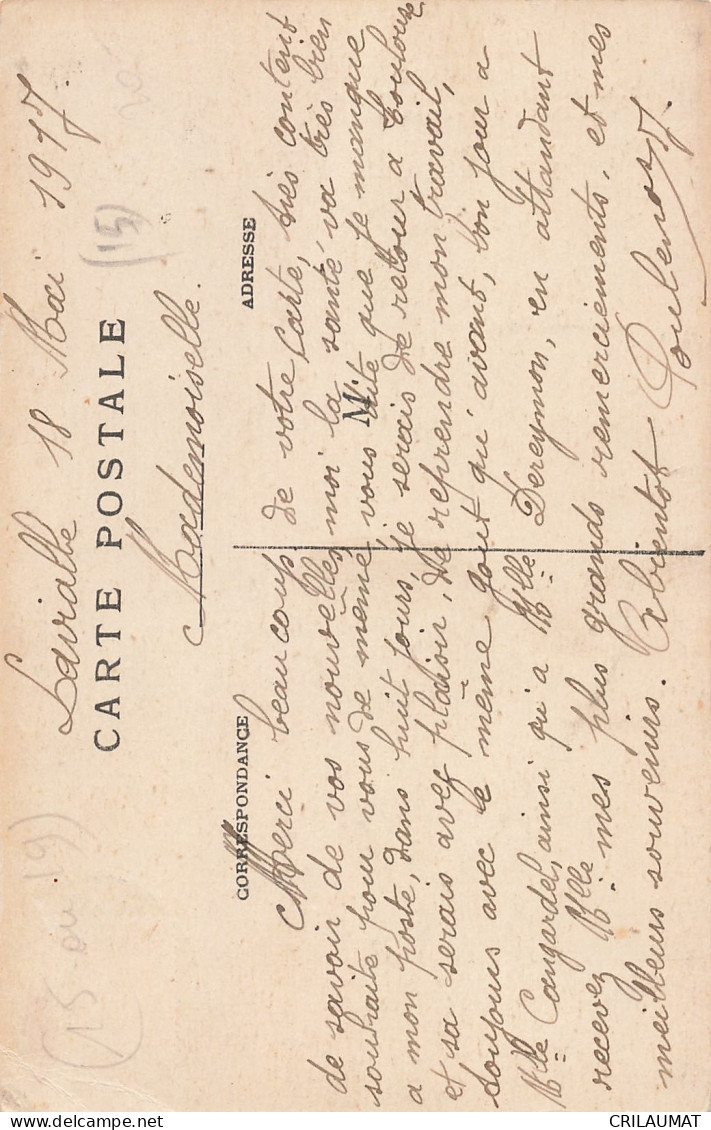 Lavialle 18 Mai 1917.
CARTE POSTALE
(15)
(15 ou 19)
Mademoiselle.
CORRESPONDANCE
ADRESSE
M
Merci beaucoup de votre carte, très content
de savoir de vos nouvelles, moi la santé va très bien
souhaite pour vous de même, vous dite que je manque
a mon poste, dans huit jours, je serais de retour a Toulouse
et sa serais avec plaisir, de reprendre mon travail,
toujours avec le même gout qu'avant, bon jour a
Mlle Cangardel, ainsi qu'a Mlle Dereymon, en attandant
recevez Mlle mes plus grands remerciements, et mes
meilleurs souvenirs. Abientot
www.delcampe.net
CRILAUMAT